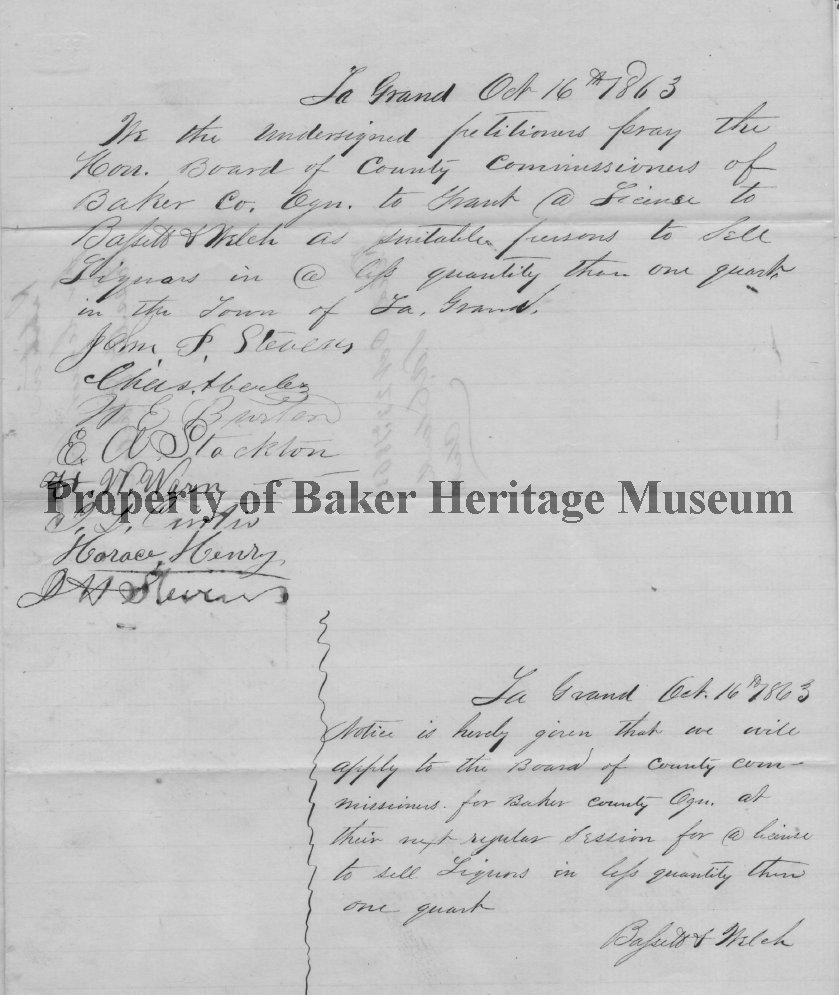 La Grand Oct 16th 1863
We the undersigned petitioners pray the
Hon. Board of County Commissioners of
Baker Co. Ogn. to Grant @ License to
Bassett & Welch as suitable persons to Sell
Liquors in @ less quantity than one quart
in the Town of La. Grand.
John S. Stevens
Chas.
W E Burton
E. A. Stockton
Warn
Property of Baker Heritage Museum
Horace Henry
Stevens
La Grand Oct. 16th 1863
Notice is hereby given that we will
apply to the Board of County com-
missioners for Baker county Ogn. at
their next regular Session for @ license
to sell Liquors in less quantity then
one quart
Bassett & Welch